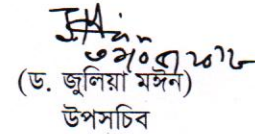 (ড. জুলিয়া মঈন)
উপসচিব